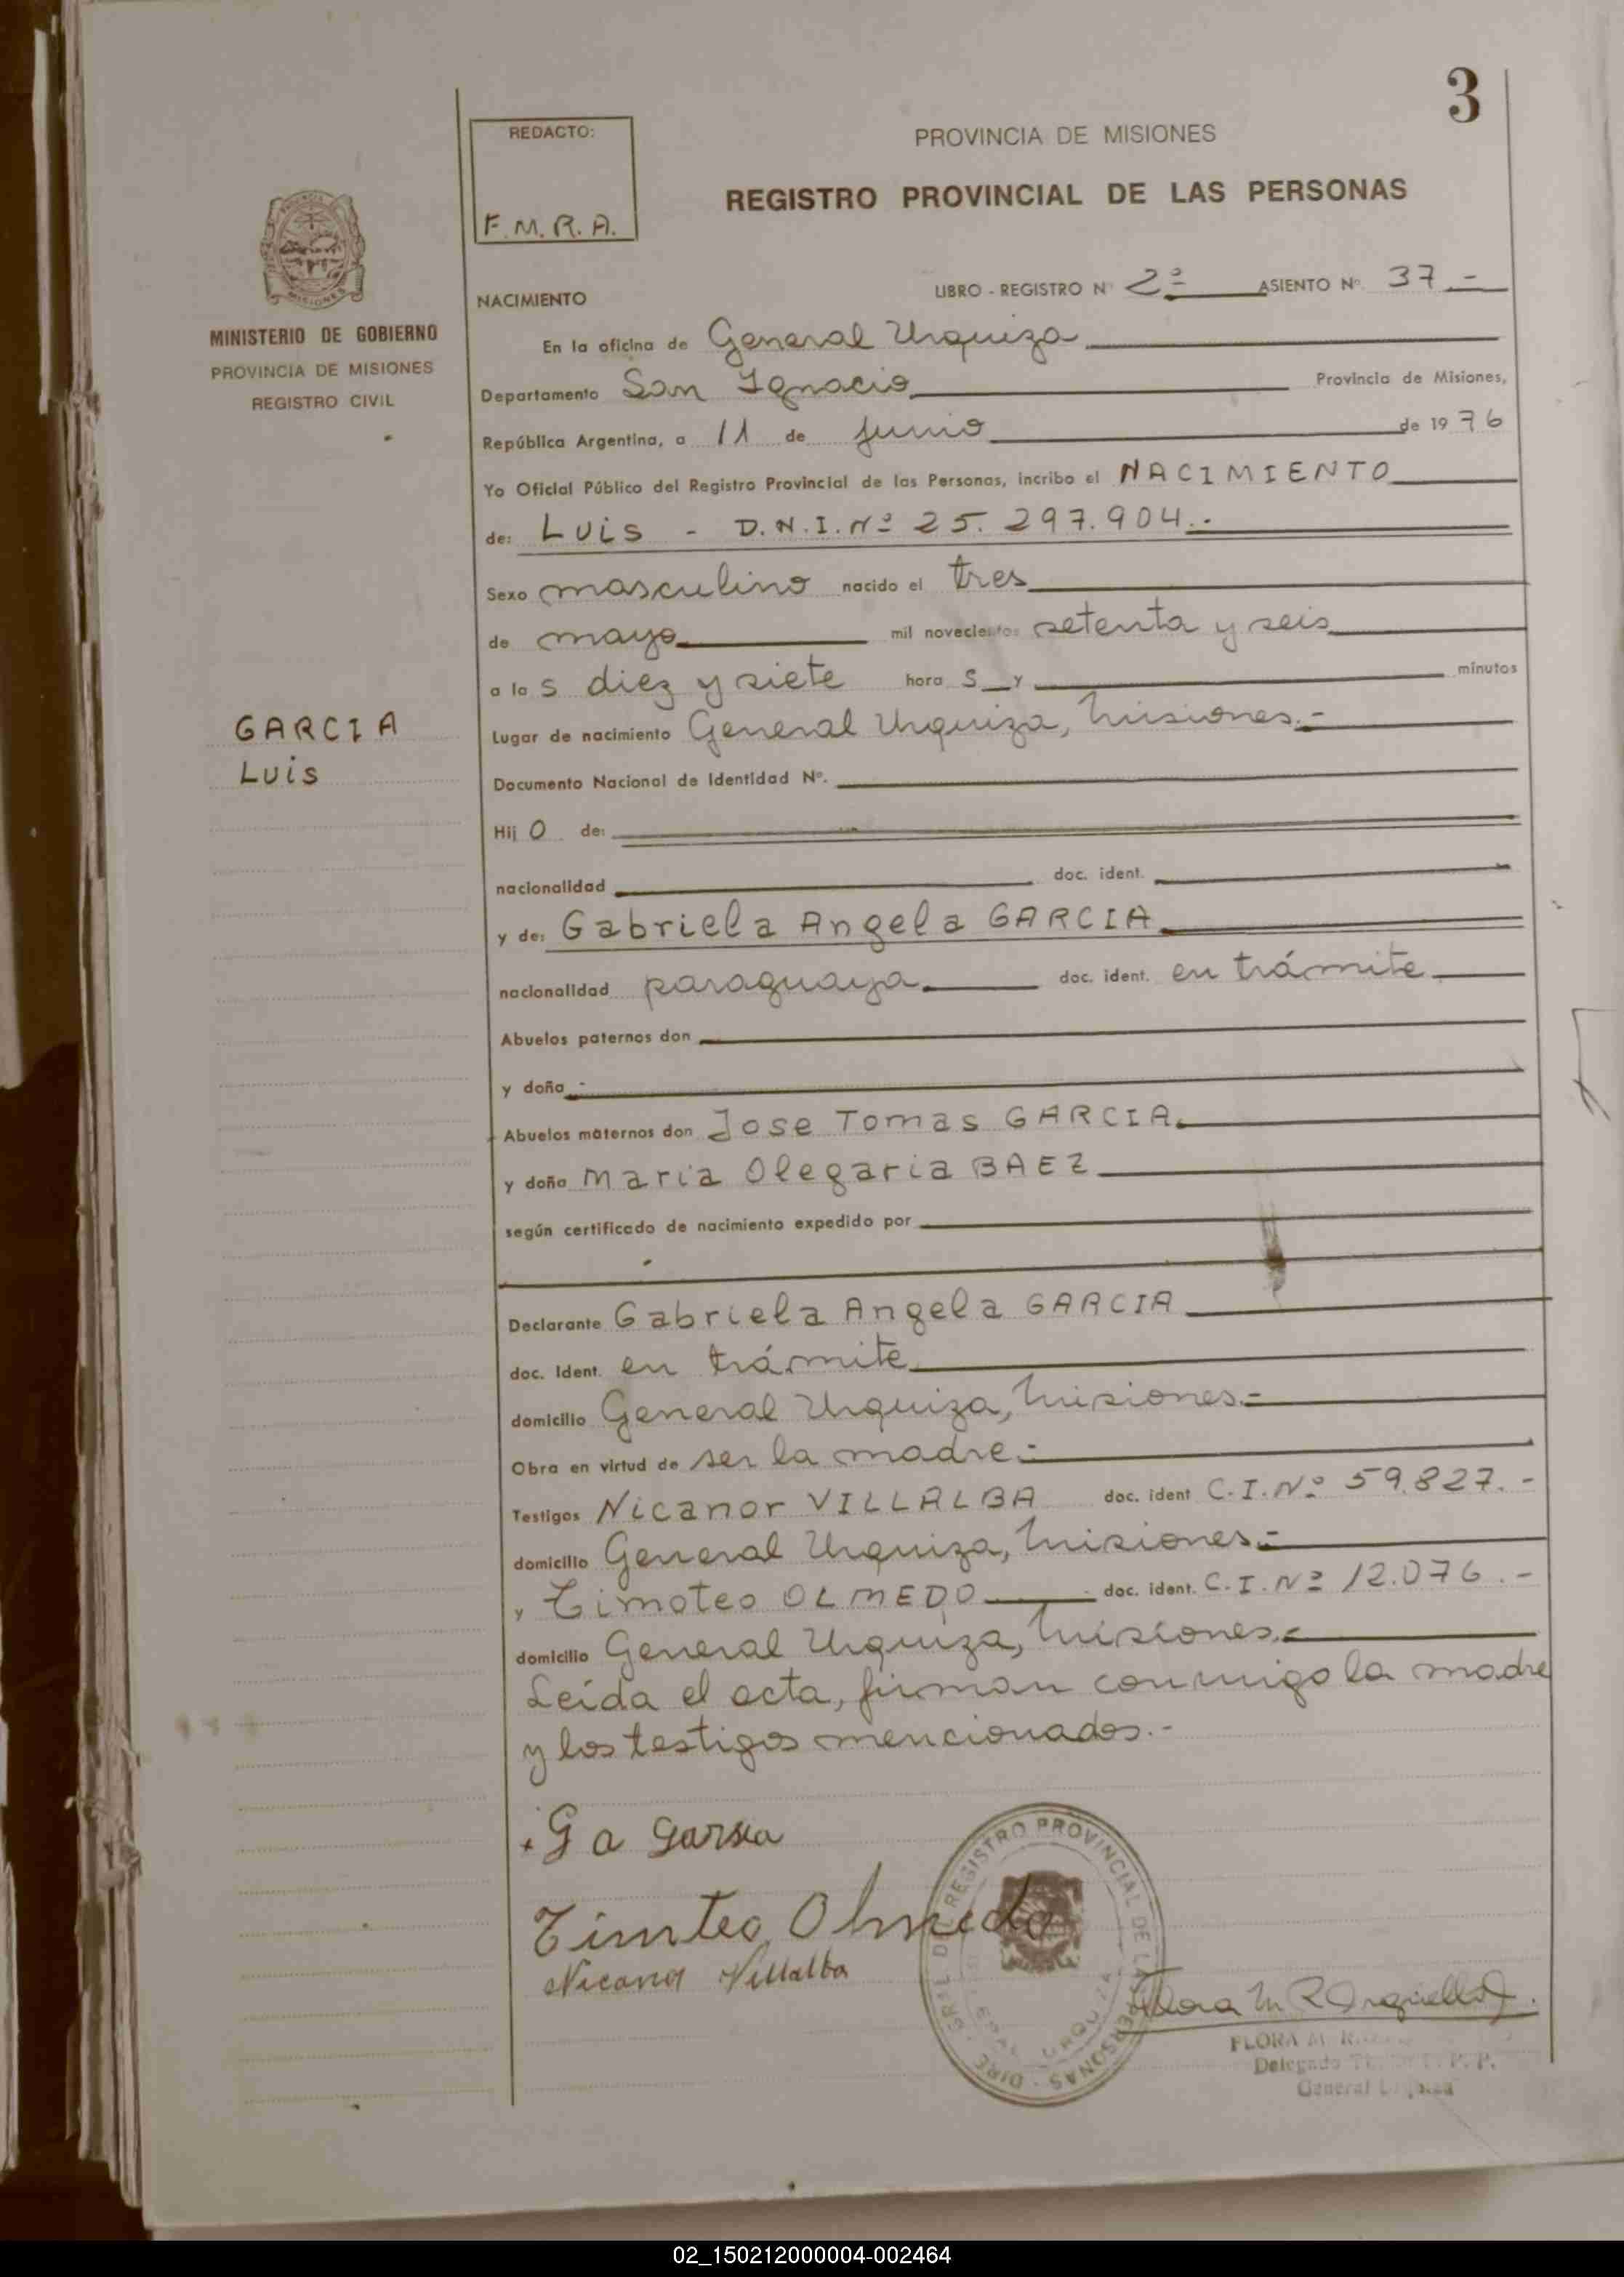 3
REDACTO:
F. M. R. A.
PROVINCIA DE MISIONES
REGISTRO PROVINCIAL DE LAS PERSONAS
MISIONES
MINISTERIO DE GOBIERNO
PROVINCIA DE MISIONES
REGISTRO CIVIL
GARCIA
Luis
NACIMIENTO
LIBRO - REGISTRO Nº 2º ASIENTO Nº 37 -
En la oficina de General Urquiza
Departamento San Ignacio Provincia de Misiones,
República Argentina, a 11 de junio de 1976
Yo Oficial Público del Registro Provincial de las Personas, incribo el NACIMIENTO
de: Luis - D.N.I. Nº 25.297.904.-
Sexo masculino nacido el tres
de mayo mil novecientos setenta y seis
a las diez y siete horas y minutos
Lugar de nacimiento General Urquiza, Misiones.-
Documento Nacional de Identidad Nº.
Hijo de:
nacionalidad doc. ident.
y de: Gabriela Angela GARCIA
nacionalidad paraguaya doc. ident. en trámite
Abuelos paternos don
y doña -
Abuelos maternos don Jose Tomas GARCIA
y doña Maria Olegaria BAEZ
según certificado de nacimiento expedido por
Declarante Gabriela Angela GARCIA
doc. Ident. en trámite
domicilio General Urquiza, Misiones.-
Obra en virtud de ser la madre.-
Testigos Nicanor VILLALBA doc. ident C.I. Nº 59.827.-
domicilio General Urquiza, Misiones.-
y Timoteo OLMEDO doc. ident. C.I. Nº 12.076.-
domicilio General Urquiza, Misiones.-
Leída el acta, firman conmigo la madre
y los testigos mencionados.-
G a Garsia
Timteo Olmedo
Nicanor Villalba
REGISTRO PROVINCIAL DE LAS PERSONAS
URQUIZA
Flora M R Arguello
FLORA M. R.
Delegado
General Urquiza
02_150212000004-002464